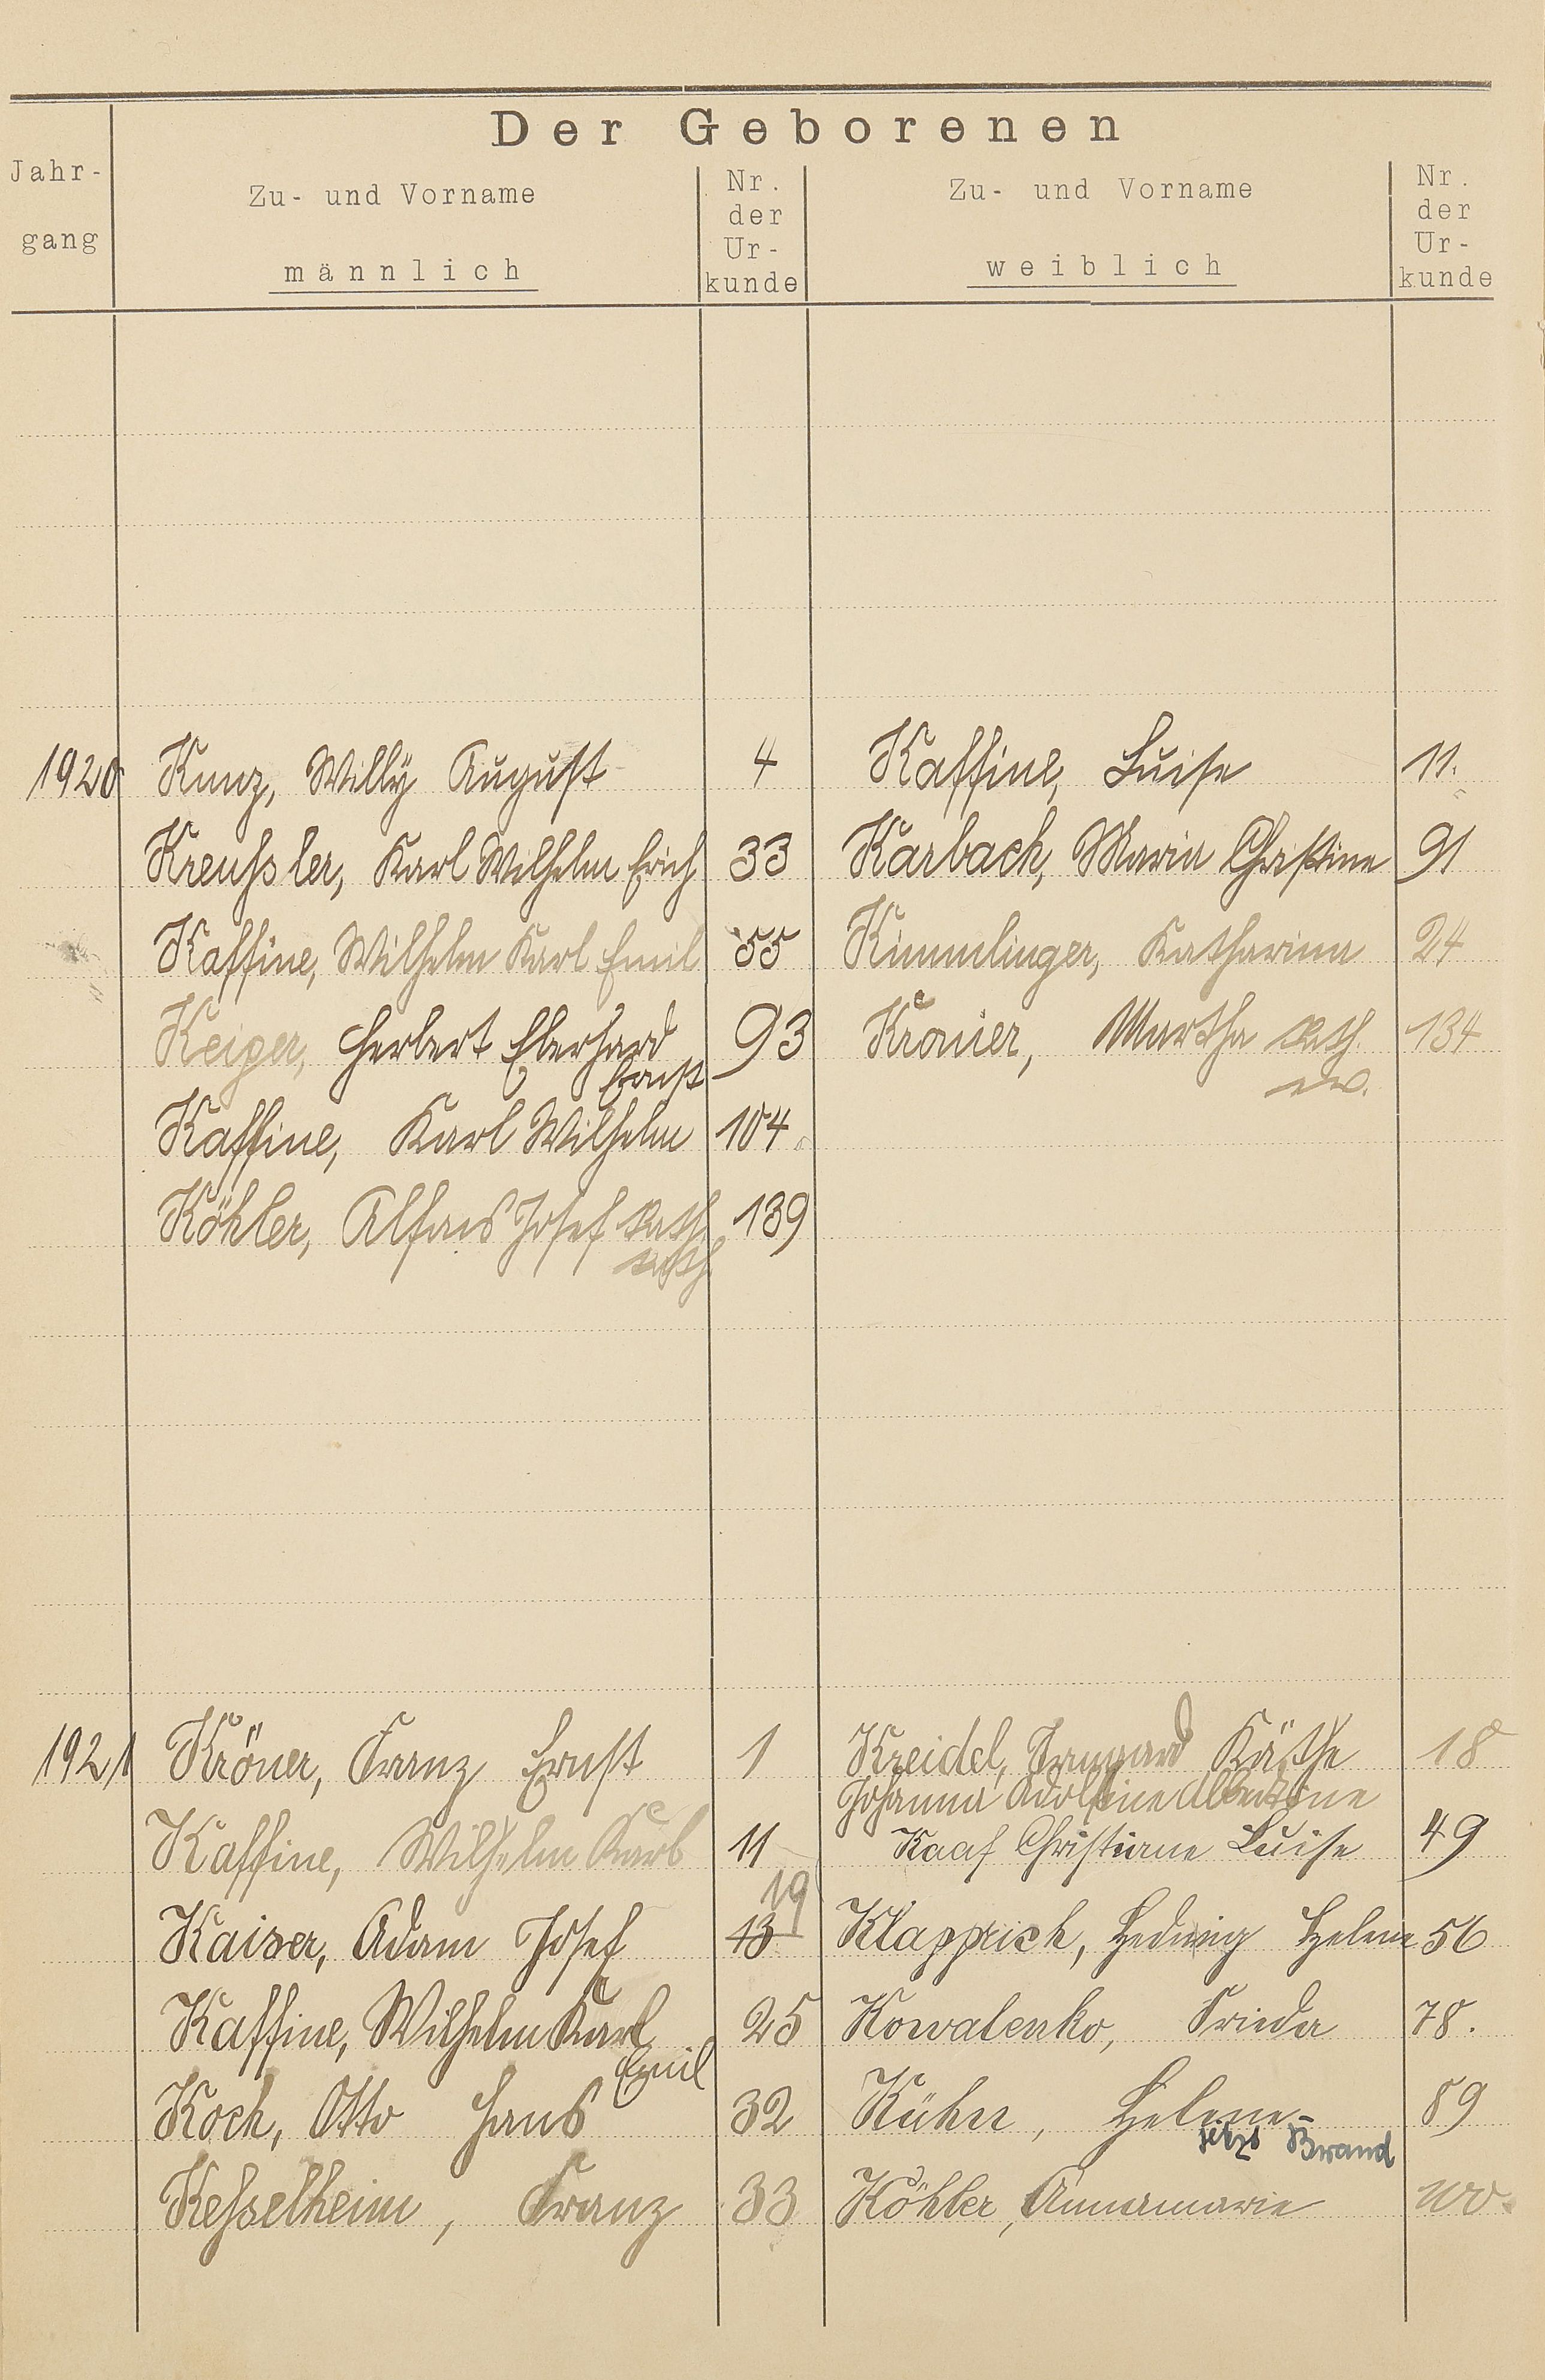 Der Geborenen
Jahr-
gang
Zu- und Vorname
männlich
Nr.
der
Ur-
kunde
Zu- und Vorname
weiblich
Nr.
der
Ur-
kunde
1920 Kunz, Willy August 4 Kaffine, Luise 11.
Kreußler, Karl Wilhelm Erich 33 Karbach, Maria Christine 91
Kaffine, Wilhelm Karl Emil 55 Kimmlinger, Katharina 24
Keiger, Herbert Eberhard 93 Kroner, Martha kath. 134
Ernst ev.
Kaffine, Karl Wilhelm 104
Köhler, Alfons Josef kath. 139
kath.
1921 Kröner, Franz Ernst 1 Kreidel, Irmgard Käthe 18
Johanna Adolfine Albertine
Kaffine, Wilhelm Karl 11 Kaaf Christiane Luise 49
19
Kaiser, Adam Josef 13 Klapprich, Hedwig Helene 56
Kaffine, Wilhelm Karl 25 Kowalenko, Frieda 78.
Emil
Koch, Otto Hans 32 Kühn, Helene- 89
jetzt Brand
Keßelheim, Franz 33 Köhler, Annamarie